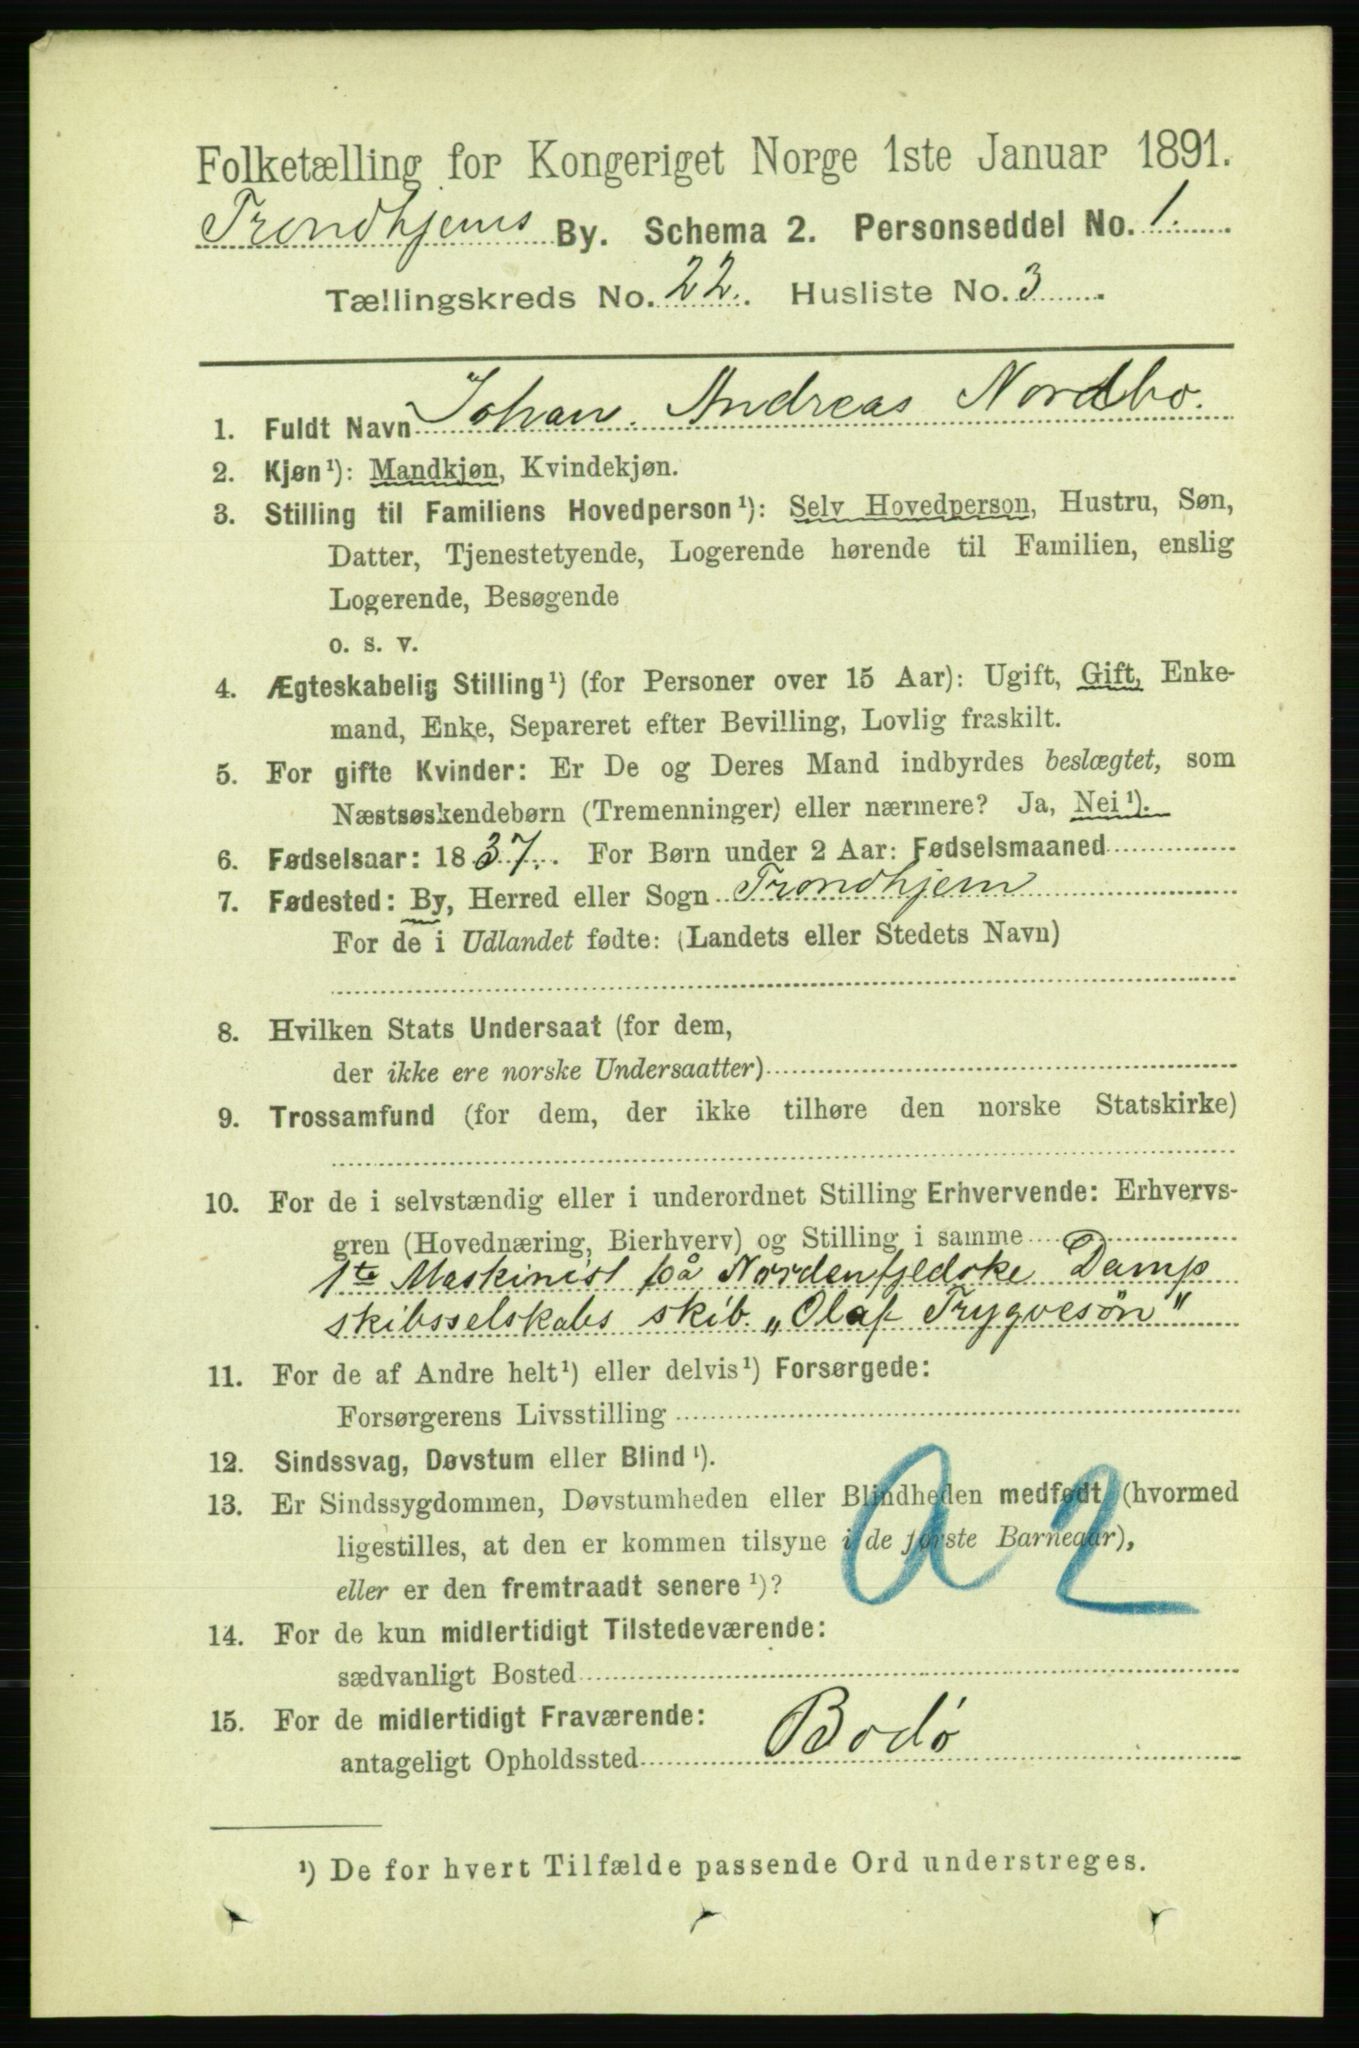 Folketælling for Kongeriget Norge 1ste Januar 1891.
Trondhjems By. Schema 2. Personseddel No. 1.
Tællingskreds No. 22. Husliste No. 3
1. Fuldt Navn Johan. Andreas Nordbo.
2. Kjøn¹): Mandkjøn, Kvindekjøn.
3. Stilling til Familiens Hovedperson¹): Selv Hovedperson, Hustru, Søn,
Datter, Tjenestetyende, Logerende hørende til Familien, enslig
Logerende, Besøgende
o. s. v.
4. Ægteskabelig Stilling¹) (for Personer over 15 Aar): Ugift, Gift, Enke-
mand, Enke, Separeret efter Bevilling, Lovlig fraskilt.
5. For gifte Kvinder: Er De og Deres Mand indbyrdes beslægtet, som
Næstsøskendebørn (Tremenninger) eller nærmere? Ja, Nei¹).
6. Fødselsaar: 1837. For Børn under 2 Aar: Fødselsmaaned
7. Fødested: By, Herred eller Sogn Trondhjem
For de i Udlandet fødte: (Landets eller Stedets Navn)
8. Hvilken Stats Undersaat (for dem,
der ikke ere norske Undersaatter)
9. Trossamfund (for dem, der ikke tilhøre den norske Statskirke)
10. For de i selvstændig eller i underordnet Stilling Erhvervende: Erhvervs-
gren (Hovednæring, Bierhverv) og Stilling i samme
1te Maskinist på Nordenfjeldske Damp
skibsselskabs skib. „Olaf Trygvesøn"
11. For de af Andre helt¹) eller delvis¹) Forsørgede:
Forsørgerens Livsstilling
12. Sindssvag, Døvstum eller Blind¹).
13. Er Sindssygdommen, Døvstumheden eller Blindheden medfødt (hvormed
ligestilles, at den er kommen tilsyne i de første Barneaar),
eller er den fremtraadt senere¹)?
a 2
14. For de kun midlertidigt Tilstedeværende:
sædvanligt Bosted
15. For de midlertidigt Fraværende:
antageligt Opholdssted Bodó
¹) De for hvert Tilfælde passende Ord understreges.